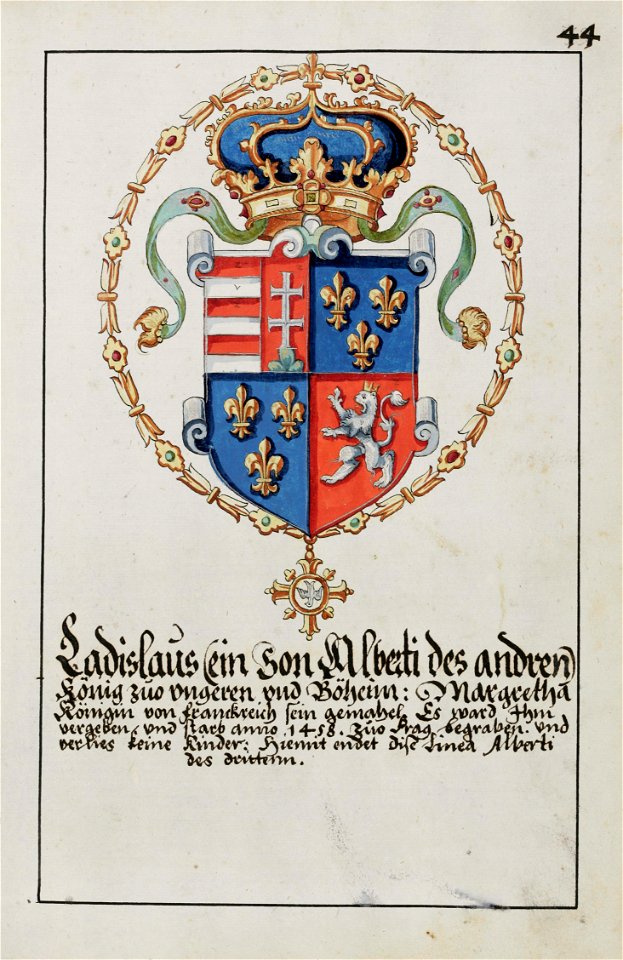 44
Ladislaus (ein Son Alberti des andren)
König zuo vngeren vnd Böheim: Margretha
Königin von franckreich sein gemahel. Es ward Ihm
vergeben, vnd starb anno. 1458. zuo Prag begraben. vnd
verlies keine Kinder: Hiemit endet dise Linea Alberti
des drittenn.